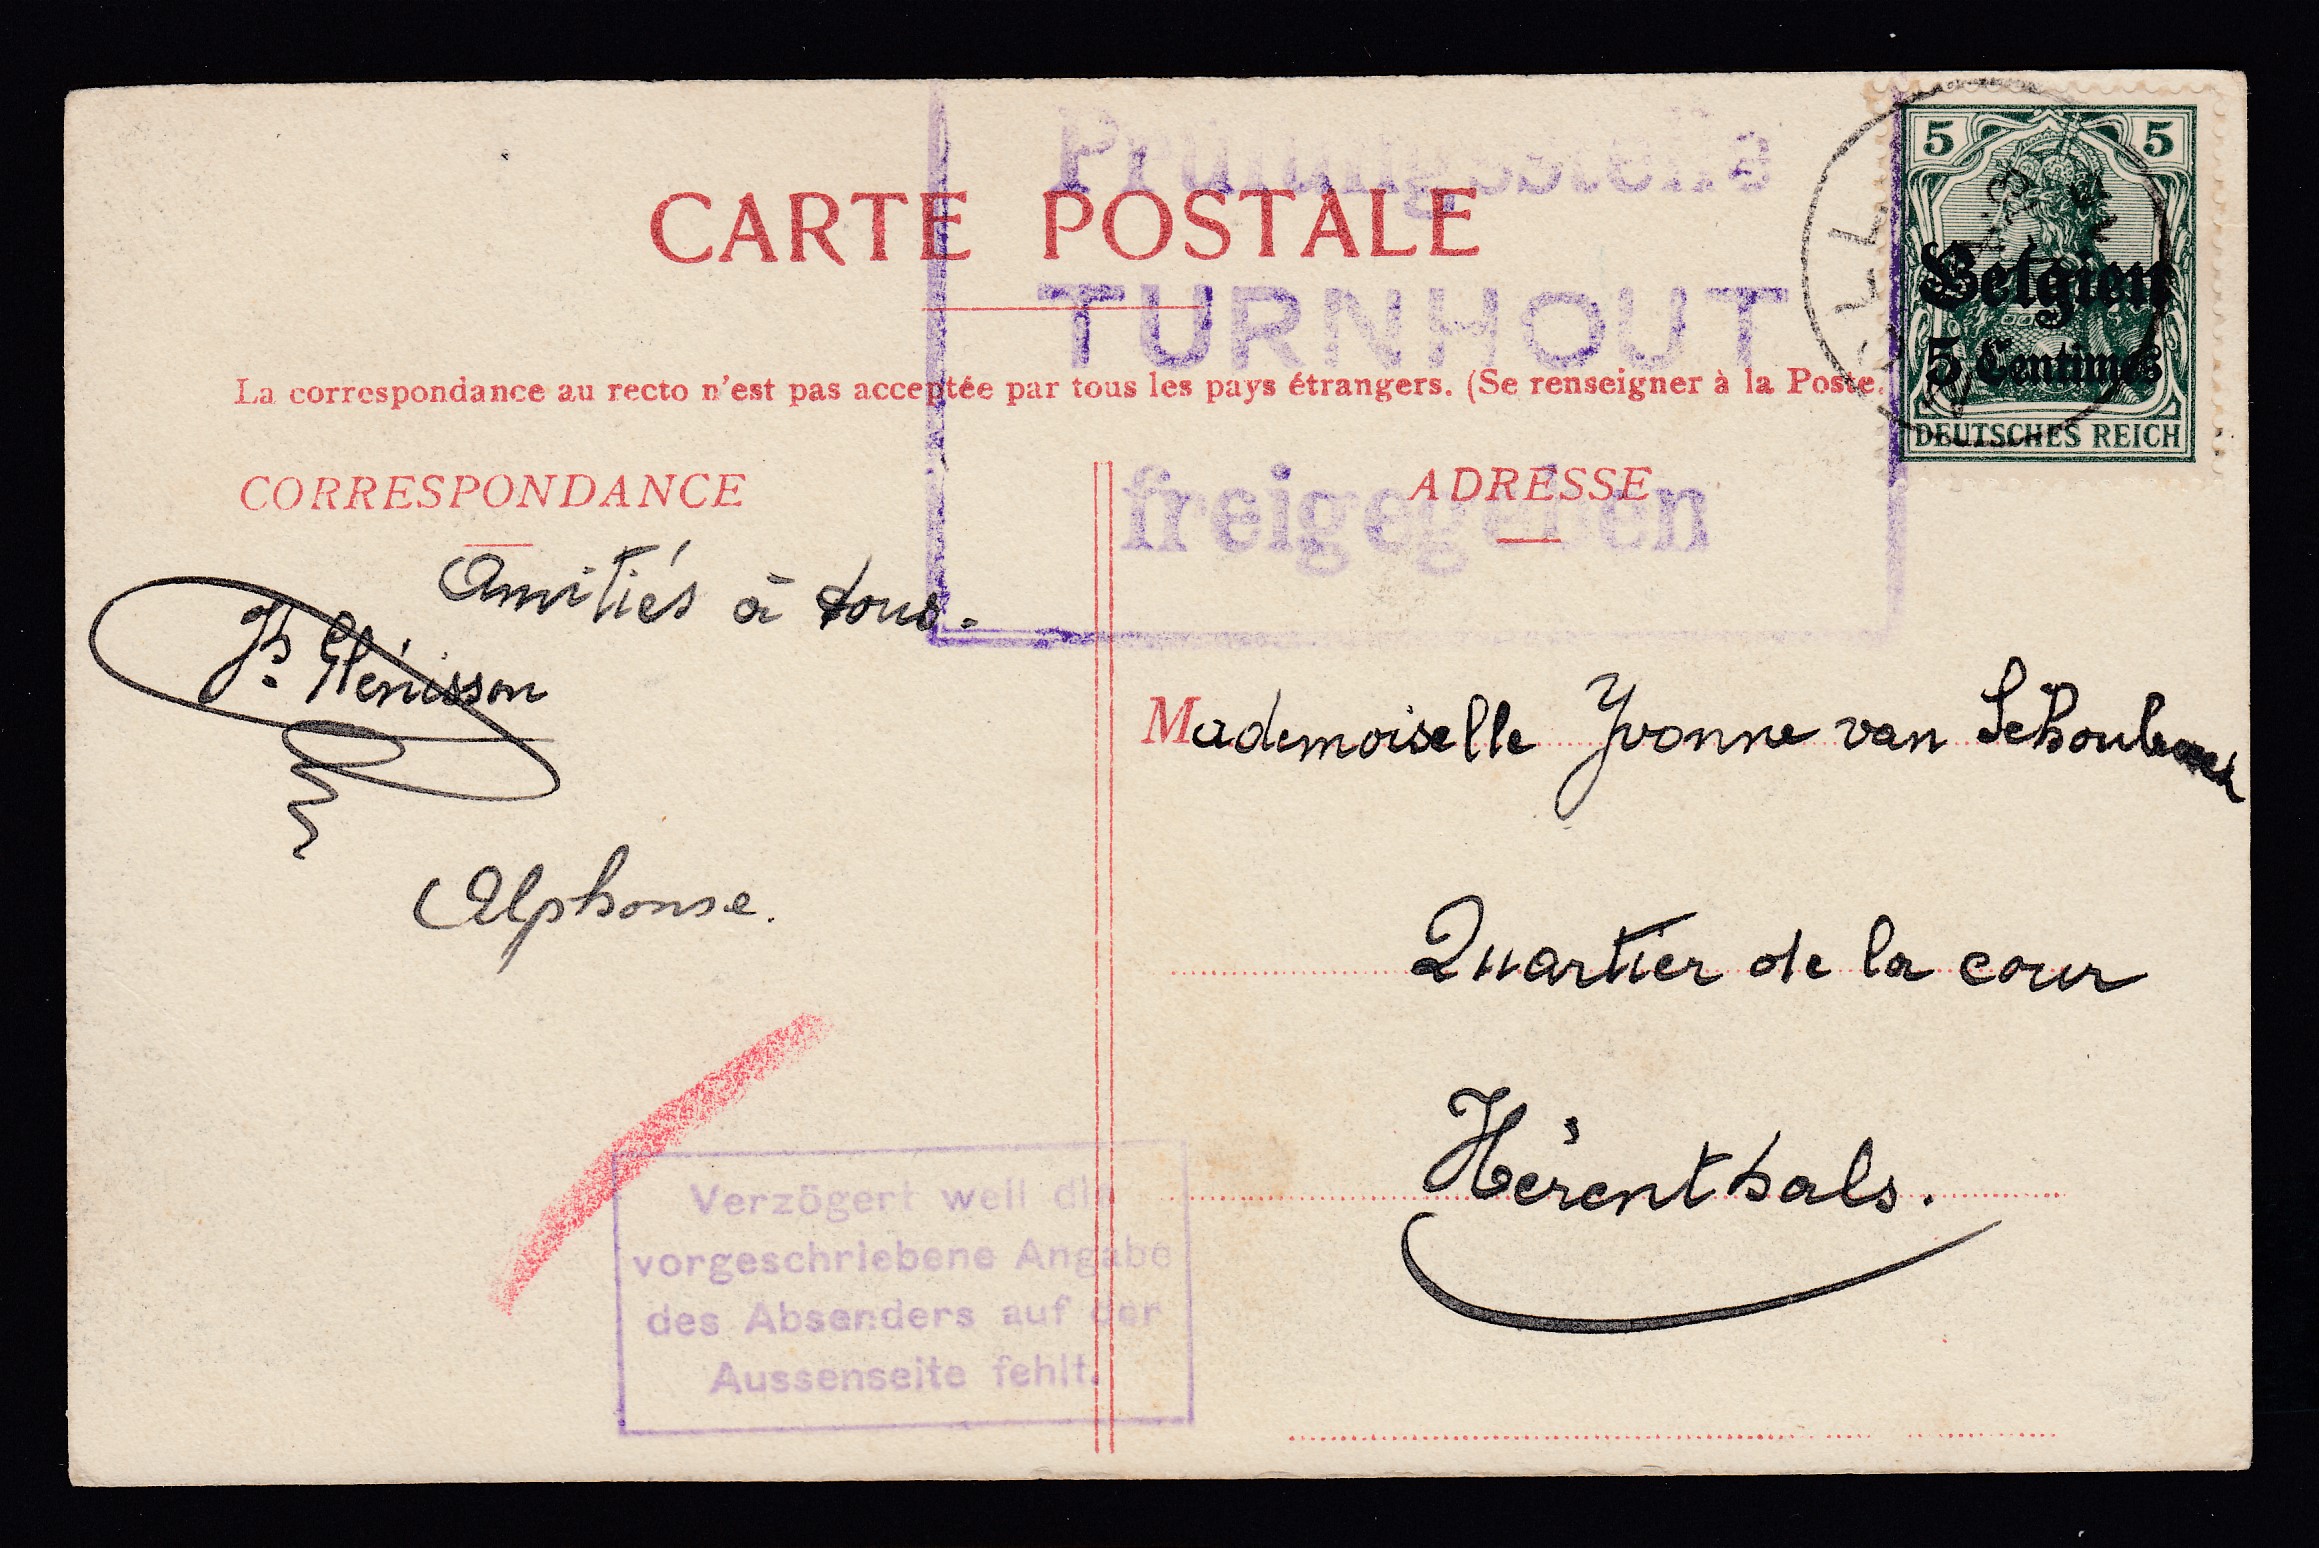 Prüfungsstelle
CARTE POSTALE
TURNHOUT
La correspondance au recto n'est pas acceptée par tous les pays étrangers. (Se renseigner à la Poste.
5 5
Belgien
5 Centimes
DEUTSCHES REICH
freigegeben
CORRESPONDANCE
ADRESSE
Amitiés à tous.
Hénisson
Alphonse.
Mademoiselle Yvonne van
Quartier de la cour
Hérenthals.
Verzögert weil die
vorgeschriebene Angabe
des Absenders auf der
Aussenseite fehlt.